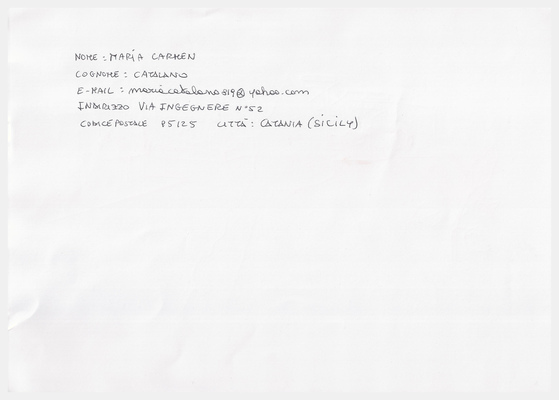 NOME : MARÍA CARMEN
COGNOME : CATALANO
E-MAIL : mariacatalano819@yahoo.com
INDIRIZZO VIA INGEGNERE N°52
CODICE POSTALE 95125 CITTÀ : CATANIA (SICILY)